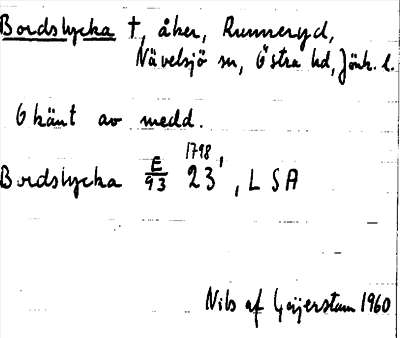 Bordslycka †, åker, Runneryd,
Nävelsjö sn, Östra hd, Jönk. l.
Okänt av medd.
Bordslycka E/93 1798 23, LSA
Nils af Geijerstam 1960